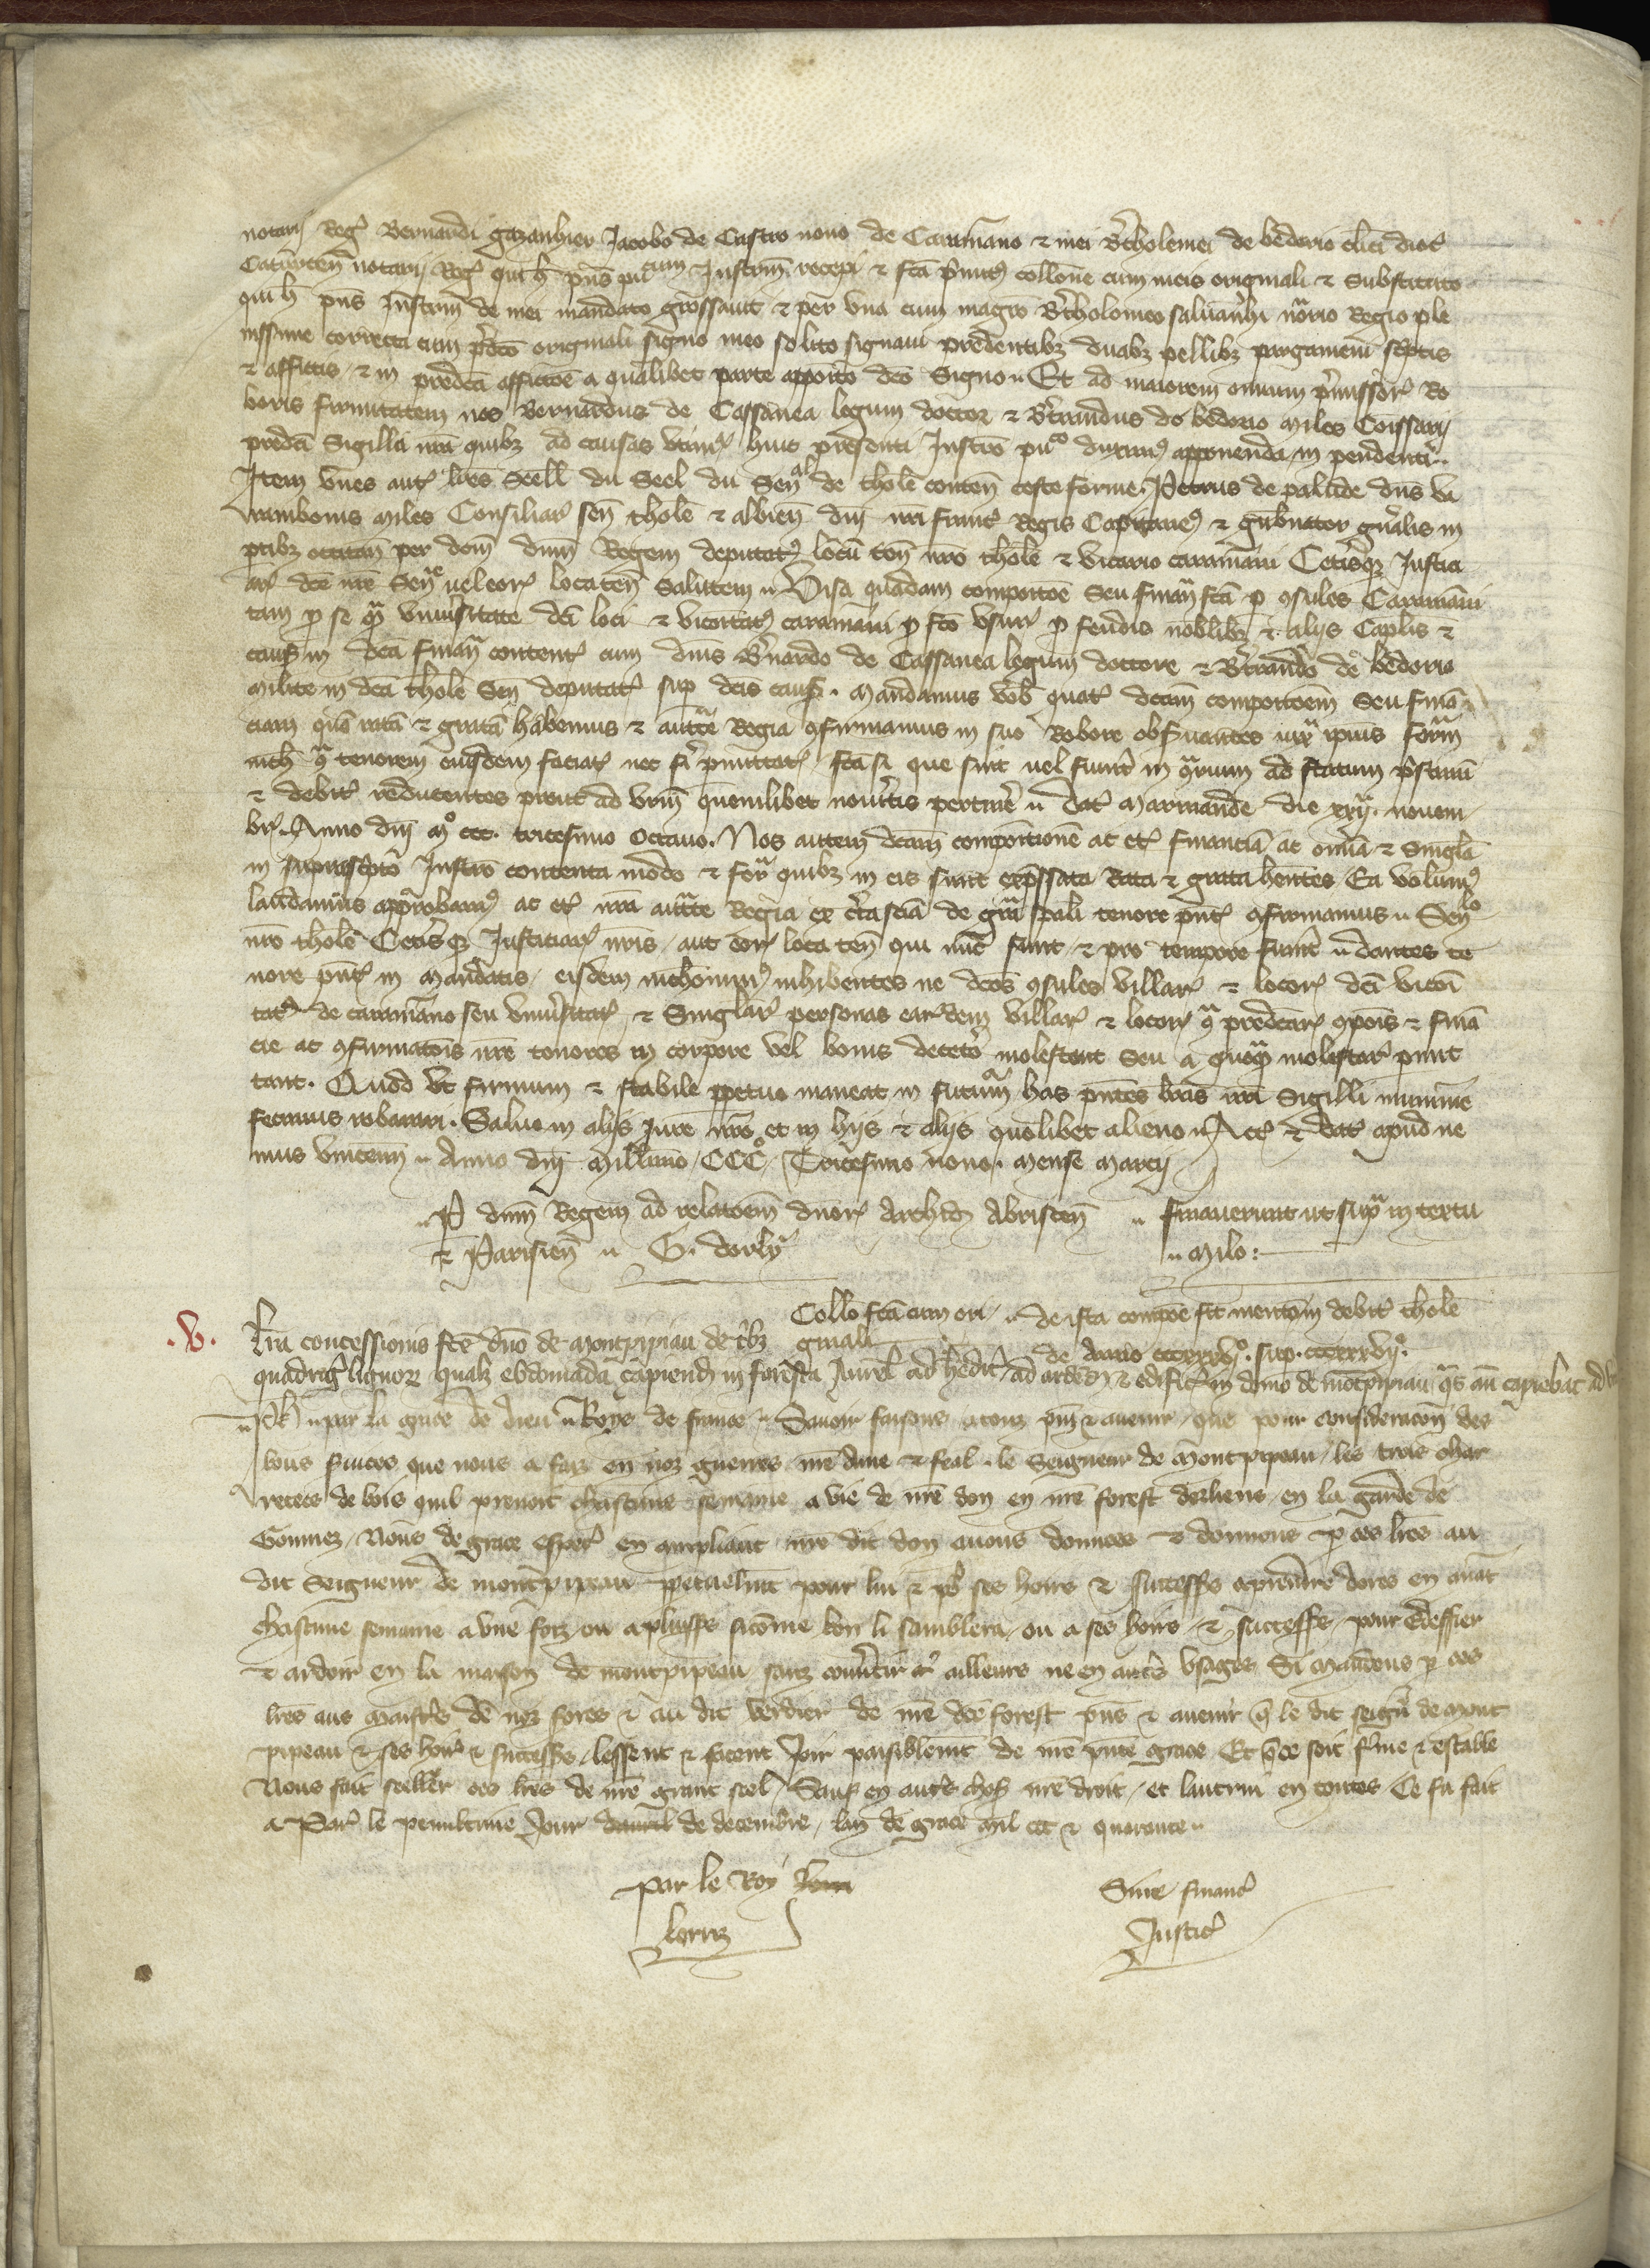 notarij Reg Bernardi gazanhier Jacobo de Castro nouo de Caramano & mei Bertholomei de bedorio clici dioc
Caturcen notarij Reg qui h pns pucum Instrm recepi & fca pmitus collone cum meis originali & Substituto
qui h pns Instrm de mei mandato grossauit & per vna cum magro Bertholomeo saluanhi norio Regio ple
nissime correcta cum pdco originali signo meo solito signaui predentibz duabz pellibz pargameni scptis
& affictis & in predca affictoe a qualibet parte apposito dco Signo Et ad maiorem omium pmissor Ro
boris firmitatem nos Bernardus de Cassanea legum doctor & Btrandus de bedorio miles Comissarij
predca Sigilla nra quibz ad causas vtimur huic presenti Instro puco duximus apponenda in pendenti
Item vnes autres lres Seell du Seel du Senal de thole conten ceste forme Petrus de palude dns va
ramboms miles Consiliar sen thole & albien dni nri franc Regis Capitaneus & gubnator gnalis in
ptibz occitan per dom dnm Regem deputatus locum ten nro thole & vicario caramani Cetisqz Justici
arijs dce nre Sene uel eor locaten Salutem Visa quadam compoitoe Seu finan fca p consules Caramani
tam p se qm vniusitate dci loci & vicoitatis caramani p fco vsur p feudis nobilibz & alijs Caplis &
caus in dca finan content cum dnis Bnardo de Cassanea legum doctore & Btrando de bedorio
milite in dca thole Sen deputat sup dcis caus Mandamus vob quat dcam compoitoem Seu fina
ciam qua rata & grata habemus & aucte Regia confirmamus in suo Robore obseruantes iux ipius form
nich con tenorem eiusdem faciat nec fi pmittat fca si que sint uel fuint in conrium ad statum pstinu
& debit reducentes prout ad vrm quemlibet nouitis pertinere dat Marmande die xxij nouem
br Anno dni mo ccc tricesimo octauo Nos autem dcam compoitione ac et financia ac omia & Singla
in suprascpto Instro contenta modo & for quibz in eis sunt expssata Rata & grata hentes Ea volumus
laudamus approbamus ac et nra aucte Regia ex cta scia de gra spali tenore pnt confirmamus Senlo
nro thole Cetisqz Justiciar nris aut eor loca ten qui nuc sunt & pro tempore fuint dantes te
nore pnt in mandatis eisdem nichominus inhibentes ne dcos consules villar & locor dci vicoi
tat de caramano seu vniusitat & Singlar personas earudem villar & locor con predcar compois & fina
cie ac confirmatois nre tenores in corpore vel bonis decetero molestent Seu a quoqm molestar pmit
tant Quod vt firmum & stabile ppetuo maneat in futurum has pntes lras nri Sigilli munime
fecimus roborari Saluo in alijs Jure nro et in hijs & alijs quolibet alieno Act & dat apud ne
mus vincenn Anno dni Millimo CCCo Tricesimo nono mense marcij
P dnm Regem ad relatoem dnor Archid Abrincen finauerunt ut supra in textu
& Parisien G. dorly Milo
Collo fca cum ori de ista compoe fit mentom debit thole
.V. Lra concessionis fce dno de Montpipiau de tbz ginali de anno cccxxxvjo sup cccxxxvijo
quadrig lignor qualz ebdomada capiend in foresta Aurel ad hedit ad ardend & edific in domo de motpipiau qs an capiebat ad
Ph par la grace de dieu Roys de france Sauoir faisons a touz pns & auenir que pour consideracon des
bons seruices que nous a faiz en noz guerres nre ame & feal le Seigneur de Montpipeau les trois char
retees de bois quil prenoit chascune semaine a vie de nre don en nre forest dorliens en la garde de
Goumez Nous de grace especl en ampliant nre dit don auons donnees & donnons p ces lres au
dit Seigneur de montpipeau ppetuelmt pour lui & por ses hoirs & successrs a prendre dores en auat
chascune semaine a vne foiz ou a plusrs si come bon li samblera ou a ses hoirs & successrs pour Edeffier
& ardoir en la maison de montpipeau sanz conuertir ailleurs ne en autres vsages Si mandons p ces
lres aus maistres de noz fores & au dit verdier de nre dce forest pns & auenir q le dit seigr de mont
pipeau & ses hoirs & successrs lessent & facent Joir paisiblemt de nre pnte grace Et q ce soit fme & estable
Nous fait seeller ces lres de nre grant seel Sauf en autres choses nre droit et lautrui en toutes Ce fu fait
a Par le penultime Jour dauril de decembre lan de grace mil ccc & quarante
Par le Roy Sine financ
Lorriz Justic